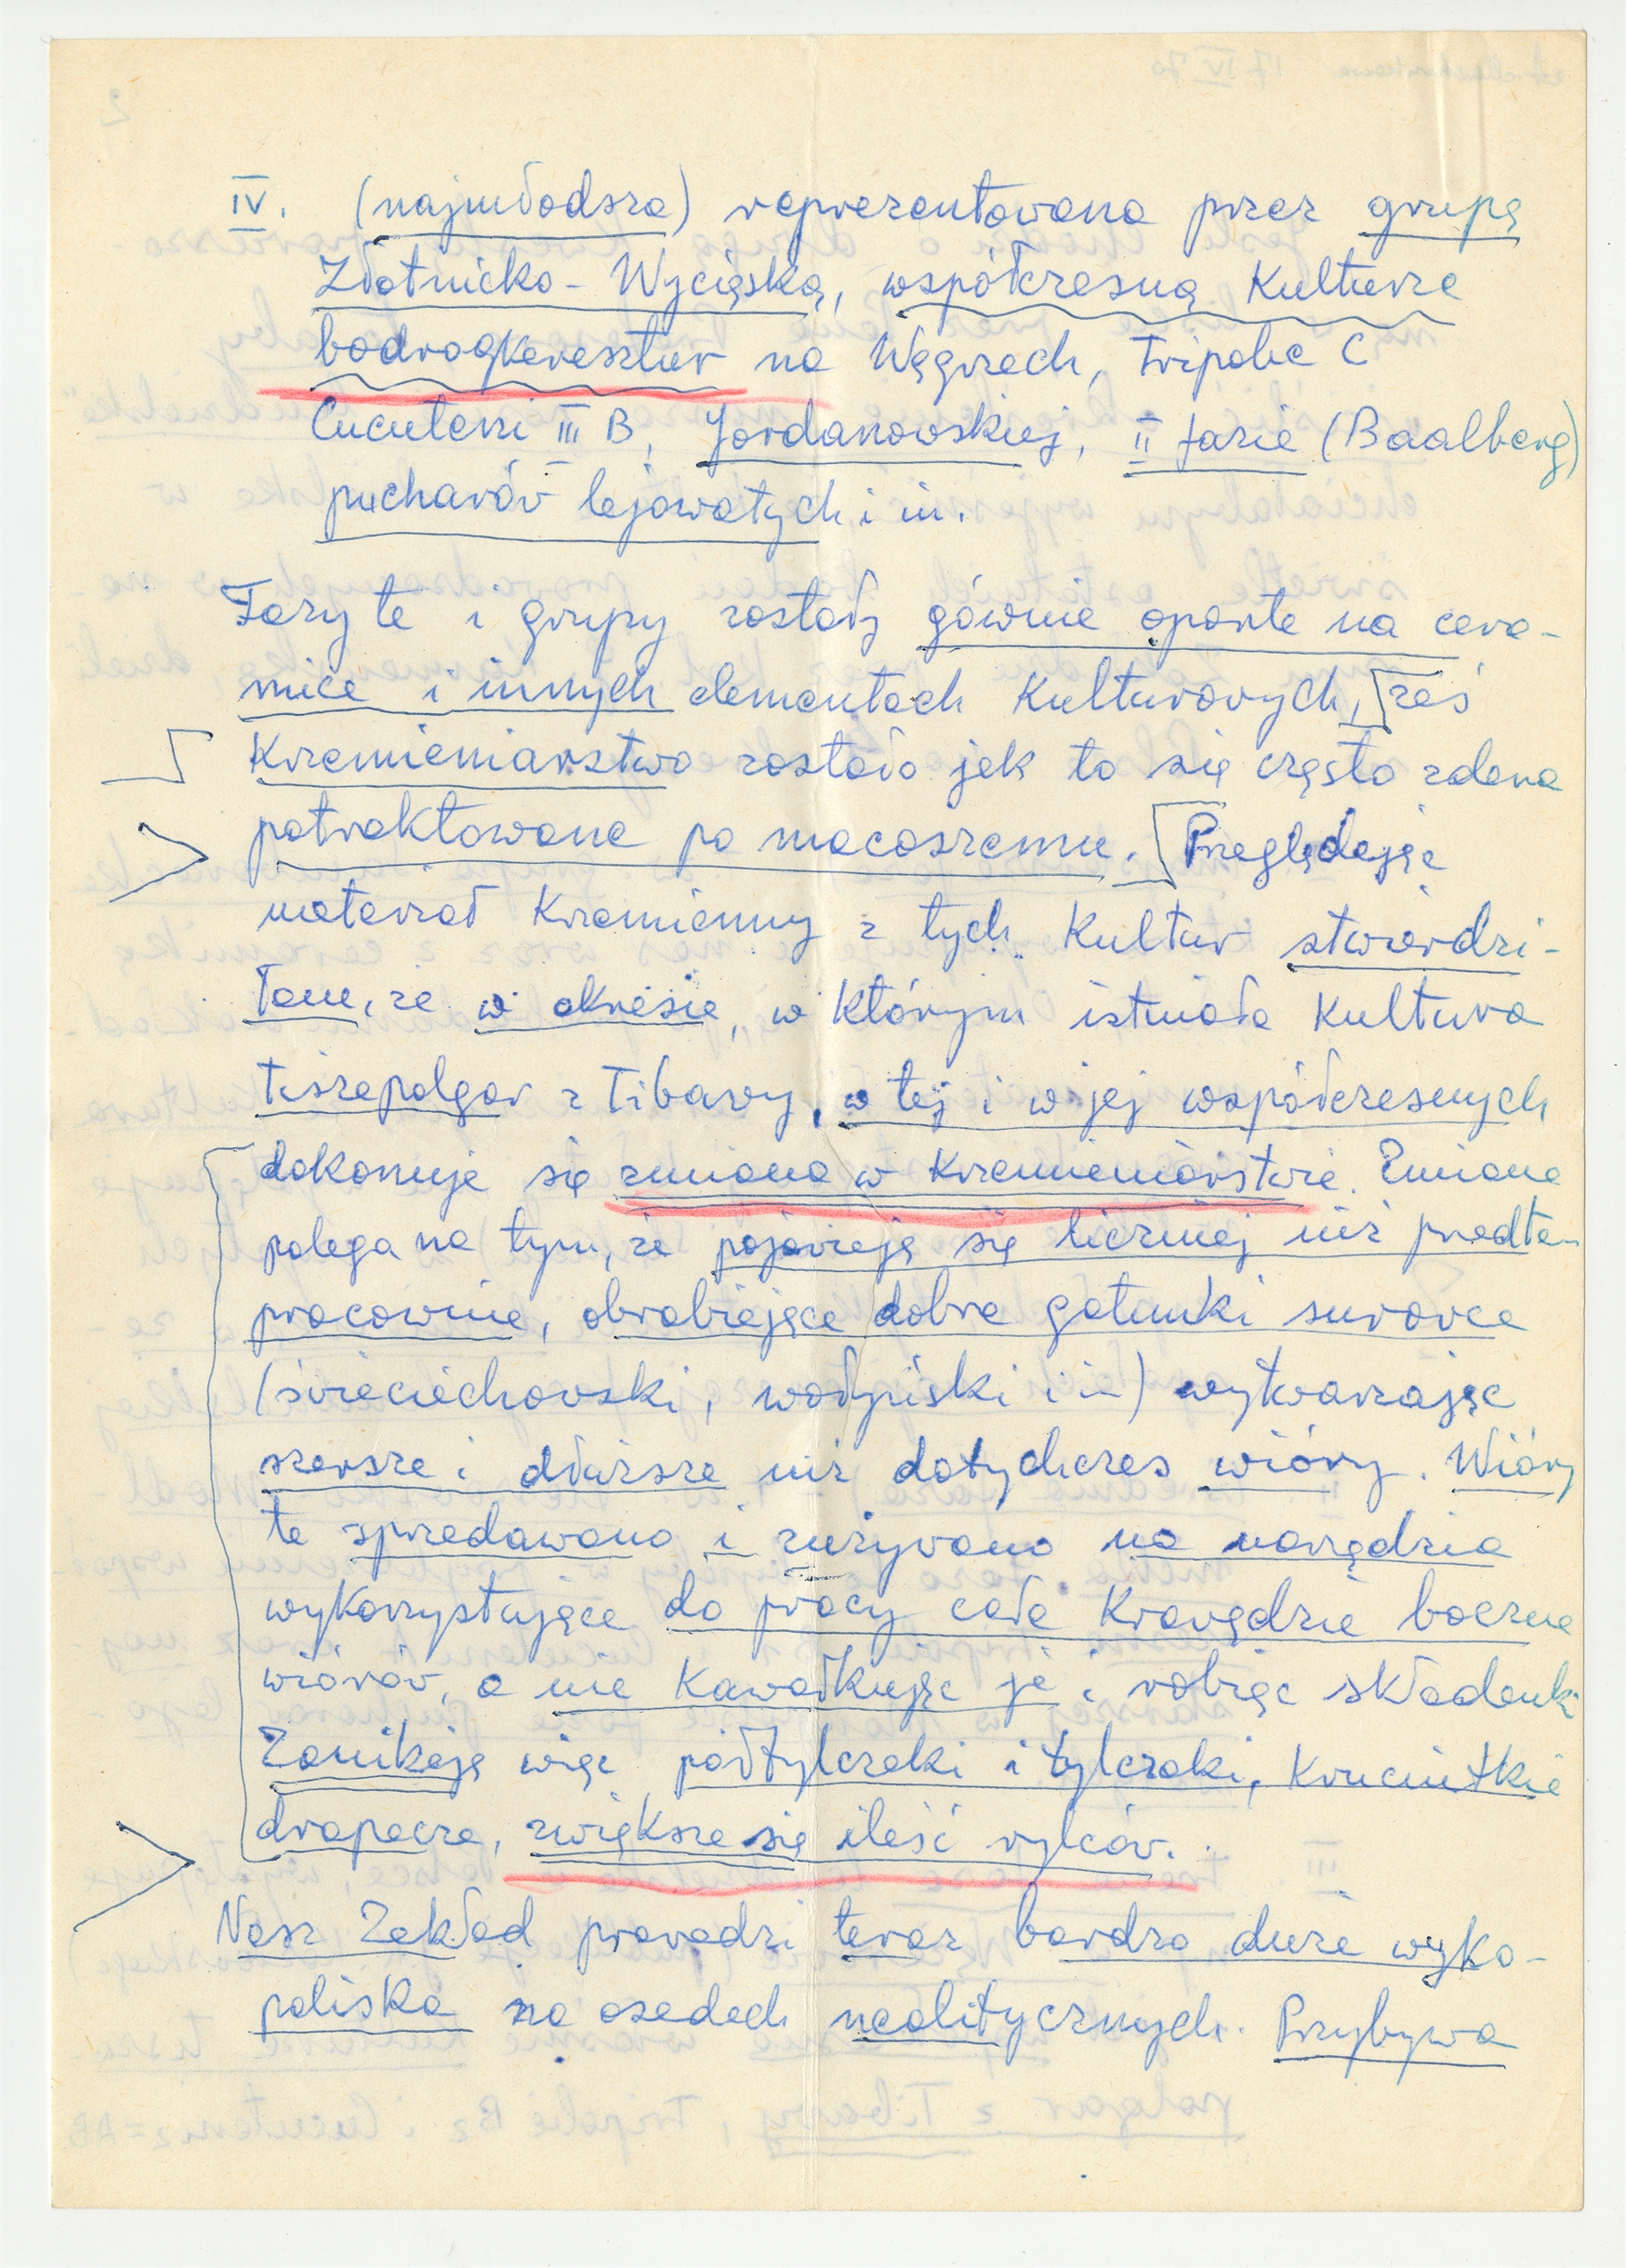 IV. (najmłodsza) reprezentowana przez grupę
Złotnicko-Wyciąską, współczesną kulturze
bodrogkeresztur na Węgrzech, Tripolie C
Cucuteni III B, Jordanowskiej, II fazie (Baalberg)
pucharów lejowatych i in.
Fazy te i grupy zostały gównie oparte na cera-
mice i innych elementach kulturowych, zaś
Krzemieniarstwo zostało jak to się często zdarza
potraktowane po macoszemu. Przeglądając
materiał krzemienny z tych kultur stwierdzi-
łam, że w okresie, w którym istniała kultura
tiszapolgar z Tibavy, w tej i w jej współczesnych
dokonuje się zmiana w krzemieniarstwie. Zmiana
polega na tym, że pojawieją się liczniej niż przedtem
pracownie, obrabiające dobre gatunki surowca
(świeciechowski, wołyński i in) wytwarzając
szersze i dłuższe niż dotychczas wióry. Wióry
te sprzedawano i zużywano na narzędzia
wykorzystujące do pracy całe krawędzie boczne
wiórów, a nie kawałkując je i robiąc składanki
Zanikają więc półtylczaki i tylczaki, krucintkie
drapacze, zwiększa się ilość rylców.
Nasz Zakład prowadzi teraz bardzo duże wyko-
paliska na osadach neolitycznych. Przybywa